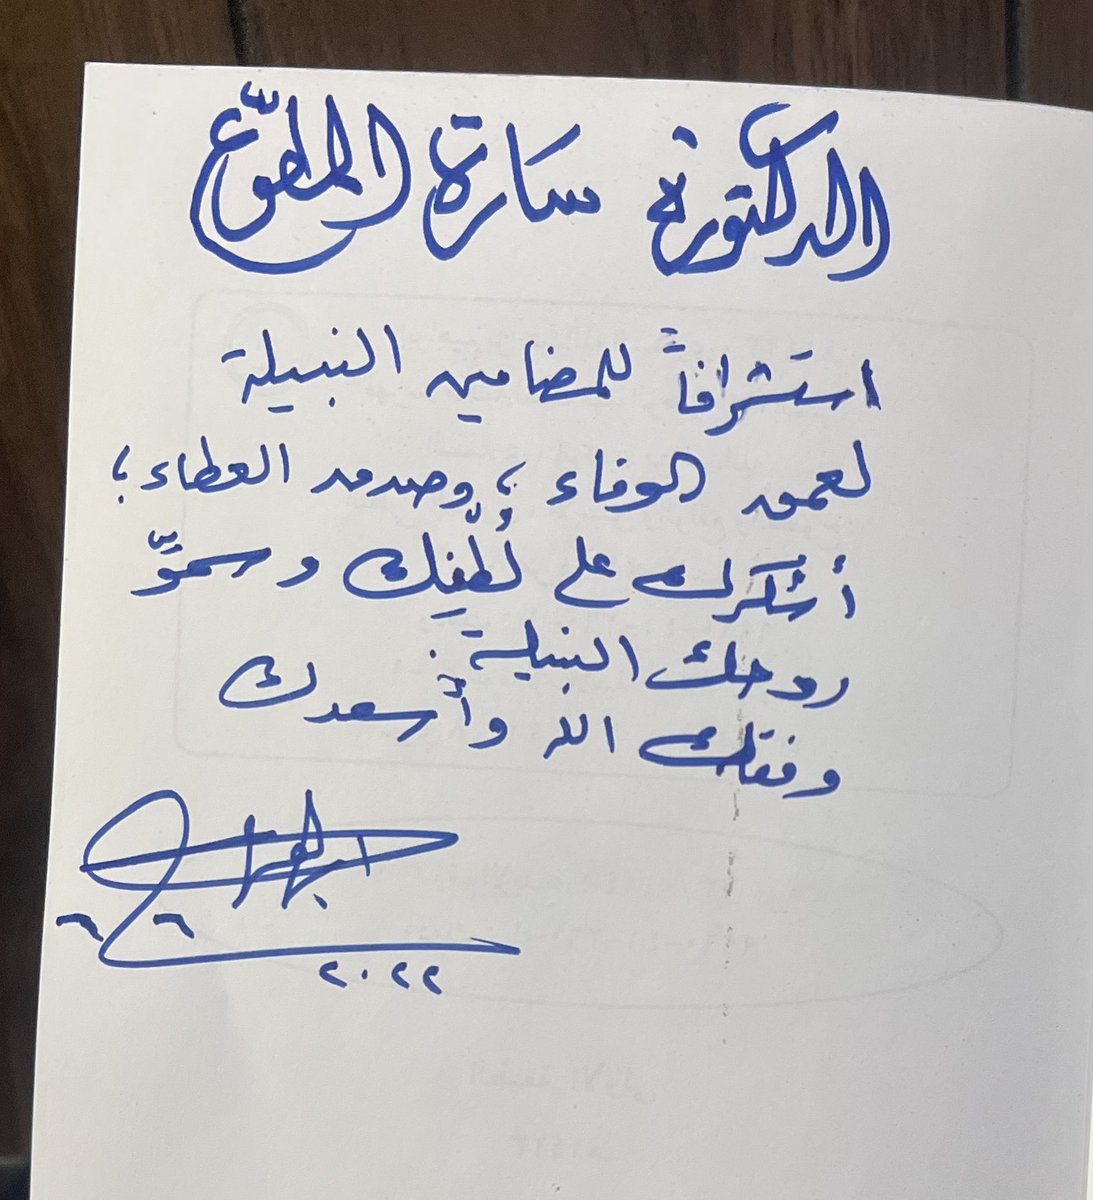 الدكتورة سارة المطوّع
استشرافاً للمضامين النبيلة
لعمق الوفاء ؛ وصدق العطاء ؛
أشكرك على لُطفِك وسموِّ
روحك النبيلة .
وفقك الله وأسعدك
٦ ٦
٢٠٢٢